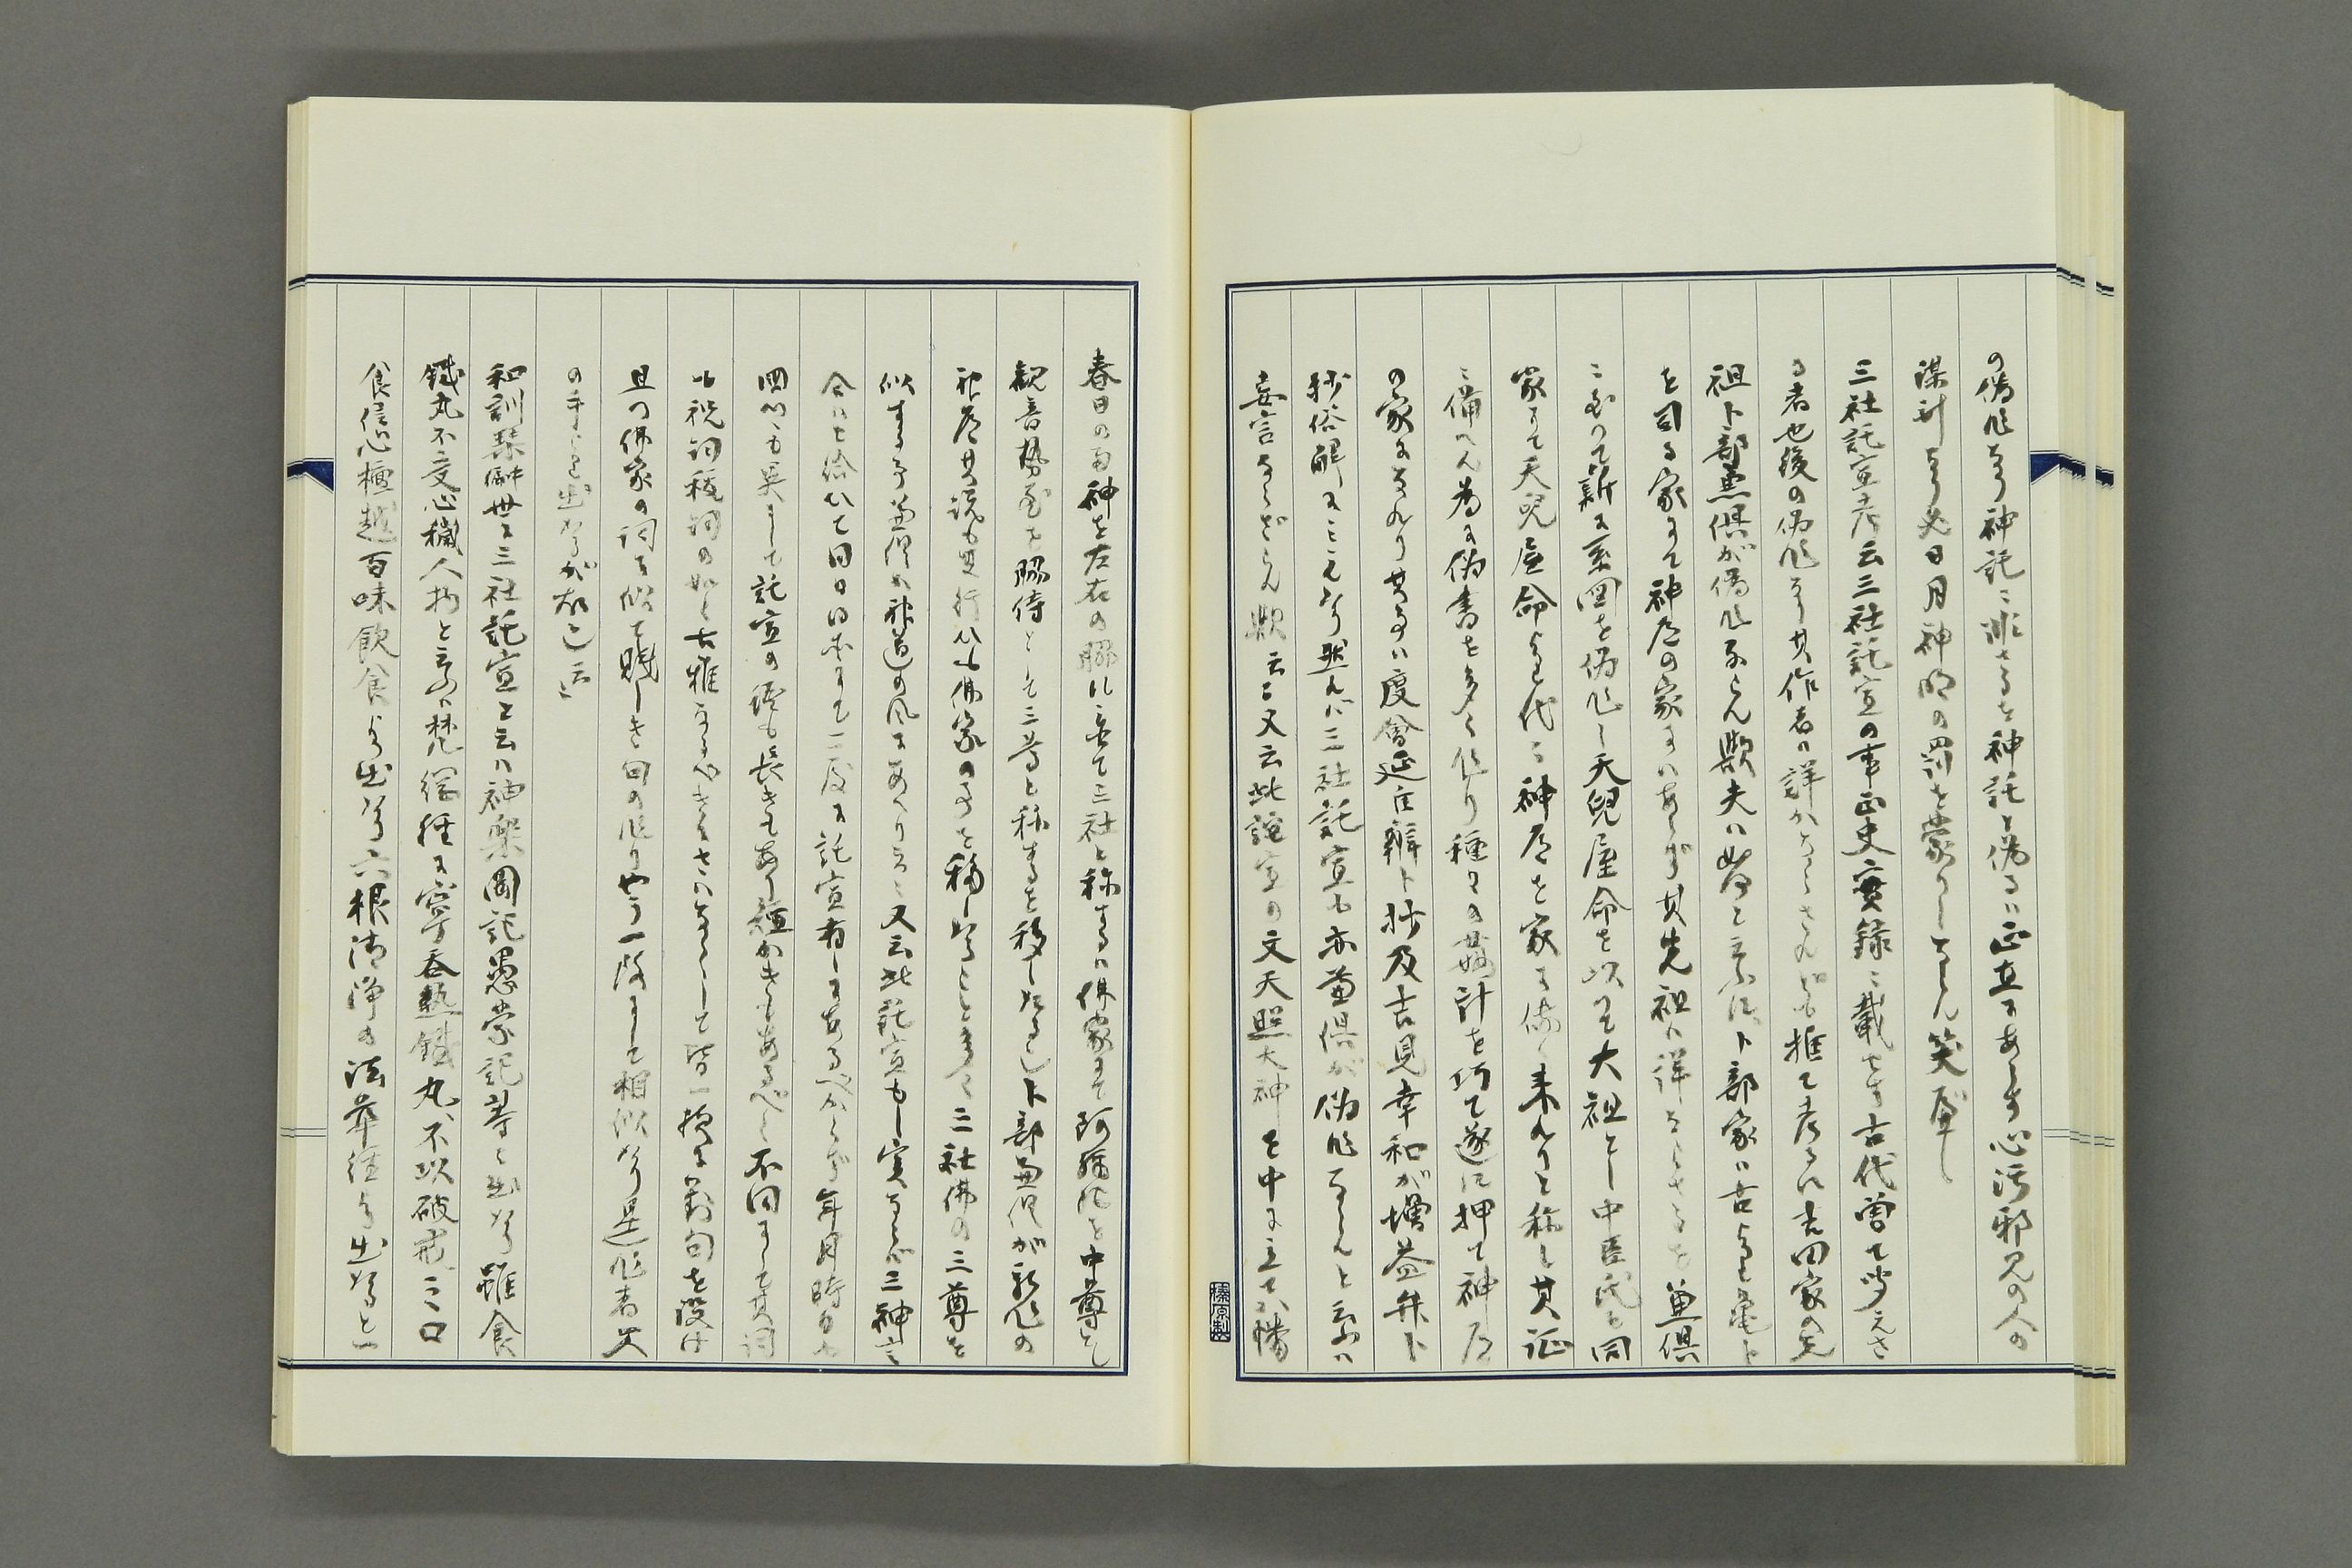 の偽作なり神託に非さるを神託と偽るは正直にあらす心汚邪見の人の
謀計なり必日月神明の罰を蒙りしならん笑ふべし
三社託宣考云三社託宣の事正史実録に載せす古代曽て聞えさ
る者也後の偽作なり其作者は詳かならされども推て考るに吉田家の先
祖卜部兼倶が偽作ならん歟夫は如何と云に卜部家は古より亀卜
を司る家にて神道の家にはあらず其先祖は詳ならさるを兼倶
に至りて新に系図を偽作し天児屋命を以て大祖とし中臣氏と同
家にて天児屋命より代々神道を家に伝へ来れりと称し其証
に備へん為に偽書を多く作り種々の姦計を巧て遂に押て神道
の家になれり其事は度会延佳辨卜抄及吉見幸和が増益弁卜
抄俗解にみえたり然れば三社託宣も亦兼倶が偽作ならんと云るは
妄言ならざらん歟云々又云此託宣の文天照大神を中に立せ八幡
春日の両神を左右の脇に立て三社と称するは仏家にて阿弥陀を中尊とし
観音勢至を脇侍として三尊と称するを移したる也卜部兼倶が新作の
神道其説も其行ひも仏家の事を移したること多く三社仏の三尊を
似する事兼倶の神道の風にあへりこと又云此託宣もし実ならば三神言
合はせ給ひて同日同所にて一度に託宣有しにあるべからず年月時日も
国所も異にして託宣の語も長きもあり短かきもあるべし不同にして其詞
も祝詞祓詞の如く古雅なるべきにさはなくして皆一揆に対句を設け
且つ仏家の詞に似て賤しき句の作りやう一階にして相似たり是作者父
の手より出たるが故也云々
和訓栞に世に三社託宣と云は神楽岡記愚蒙記等に出たり雖食
鉄丸不受心穢人物と云るは梵網経に寧呑熱鉄丸、不以破戒之口
食信心檀越百味飲食より出たり六根清浄は法華経より出たると一
榛原製